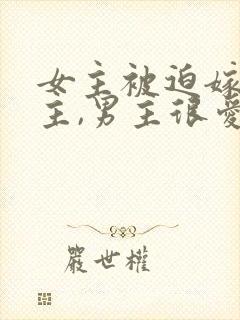 女主被迫嫁
主,男主很爱
嚴世權